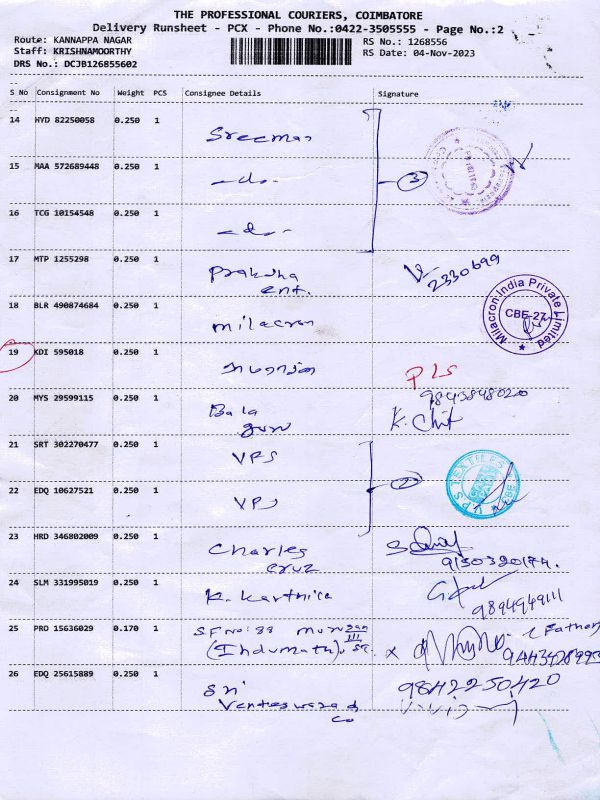 THE PROFESSIONAL COURIERS, COIMBATORE
Delivery Runsheet - PCX - Phone No.:0422-3505555 - Page No.:2
Route: KANNAPPA NAGAR
Staff: KRISHNAMOORTHY
DRS No.: DCJB126855602
RS No.: 1268556
RS Date: 04-Nov-2023
S No Consignment No Weight PCS Consignee Details Signature
14 HYD 82250058 0.250 1
15 MAA 572689448 0.250 1 -do-
3
16 TCG 10154548 0.250 1 -do-
17 MTP 1255298 0.250 1 Prakdha
ent.
2330699
18 BLR 490874684 0.250 1 milacron
Milacron India Private Limited
CBE-27
19 KDI 595018 0.250 1
PLS
20 MYS 29599115 0.250 1 Bala
guru
9843848020
K. Chit
21 SRT 302270477 0.250 1 VPS
2
VPS TEXTILES
22 EDQ 10627521 0.250 1 VPS
23 HRD 346802009 0.250 1 Charles
cruz
9150320174.
24 SLM 331995019 0.250 1 K. Karthick
9894949111
25 PRO 15636029 0.170 1 S.F No: 88 Murugan
(Indumathi) III St.
x
(Father)
26 EDQ 25615889 0.250 1 Sri
Venteswara
co
9842250420